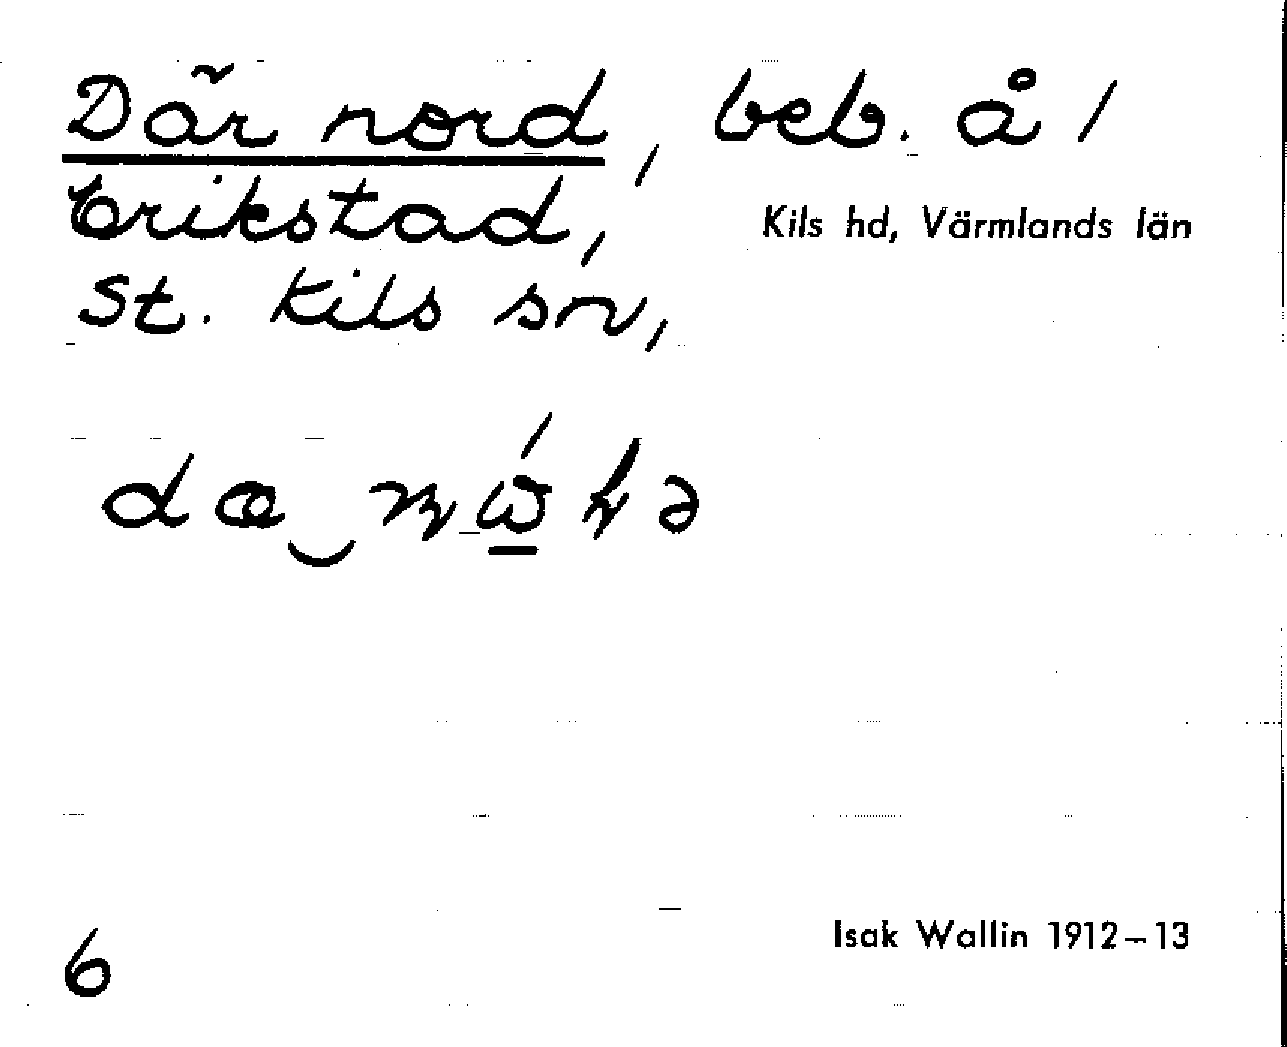 Där nord, beb. å /
Erikstad,
Kils hd, Värmlands län
St. Kils sn,
6
Isak Wallin 1912–13